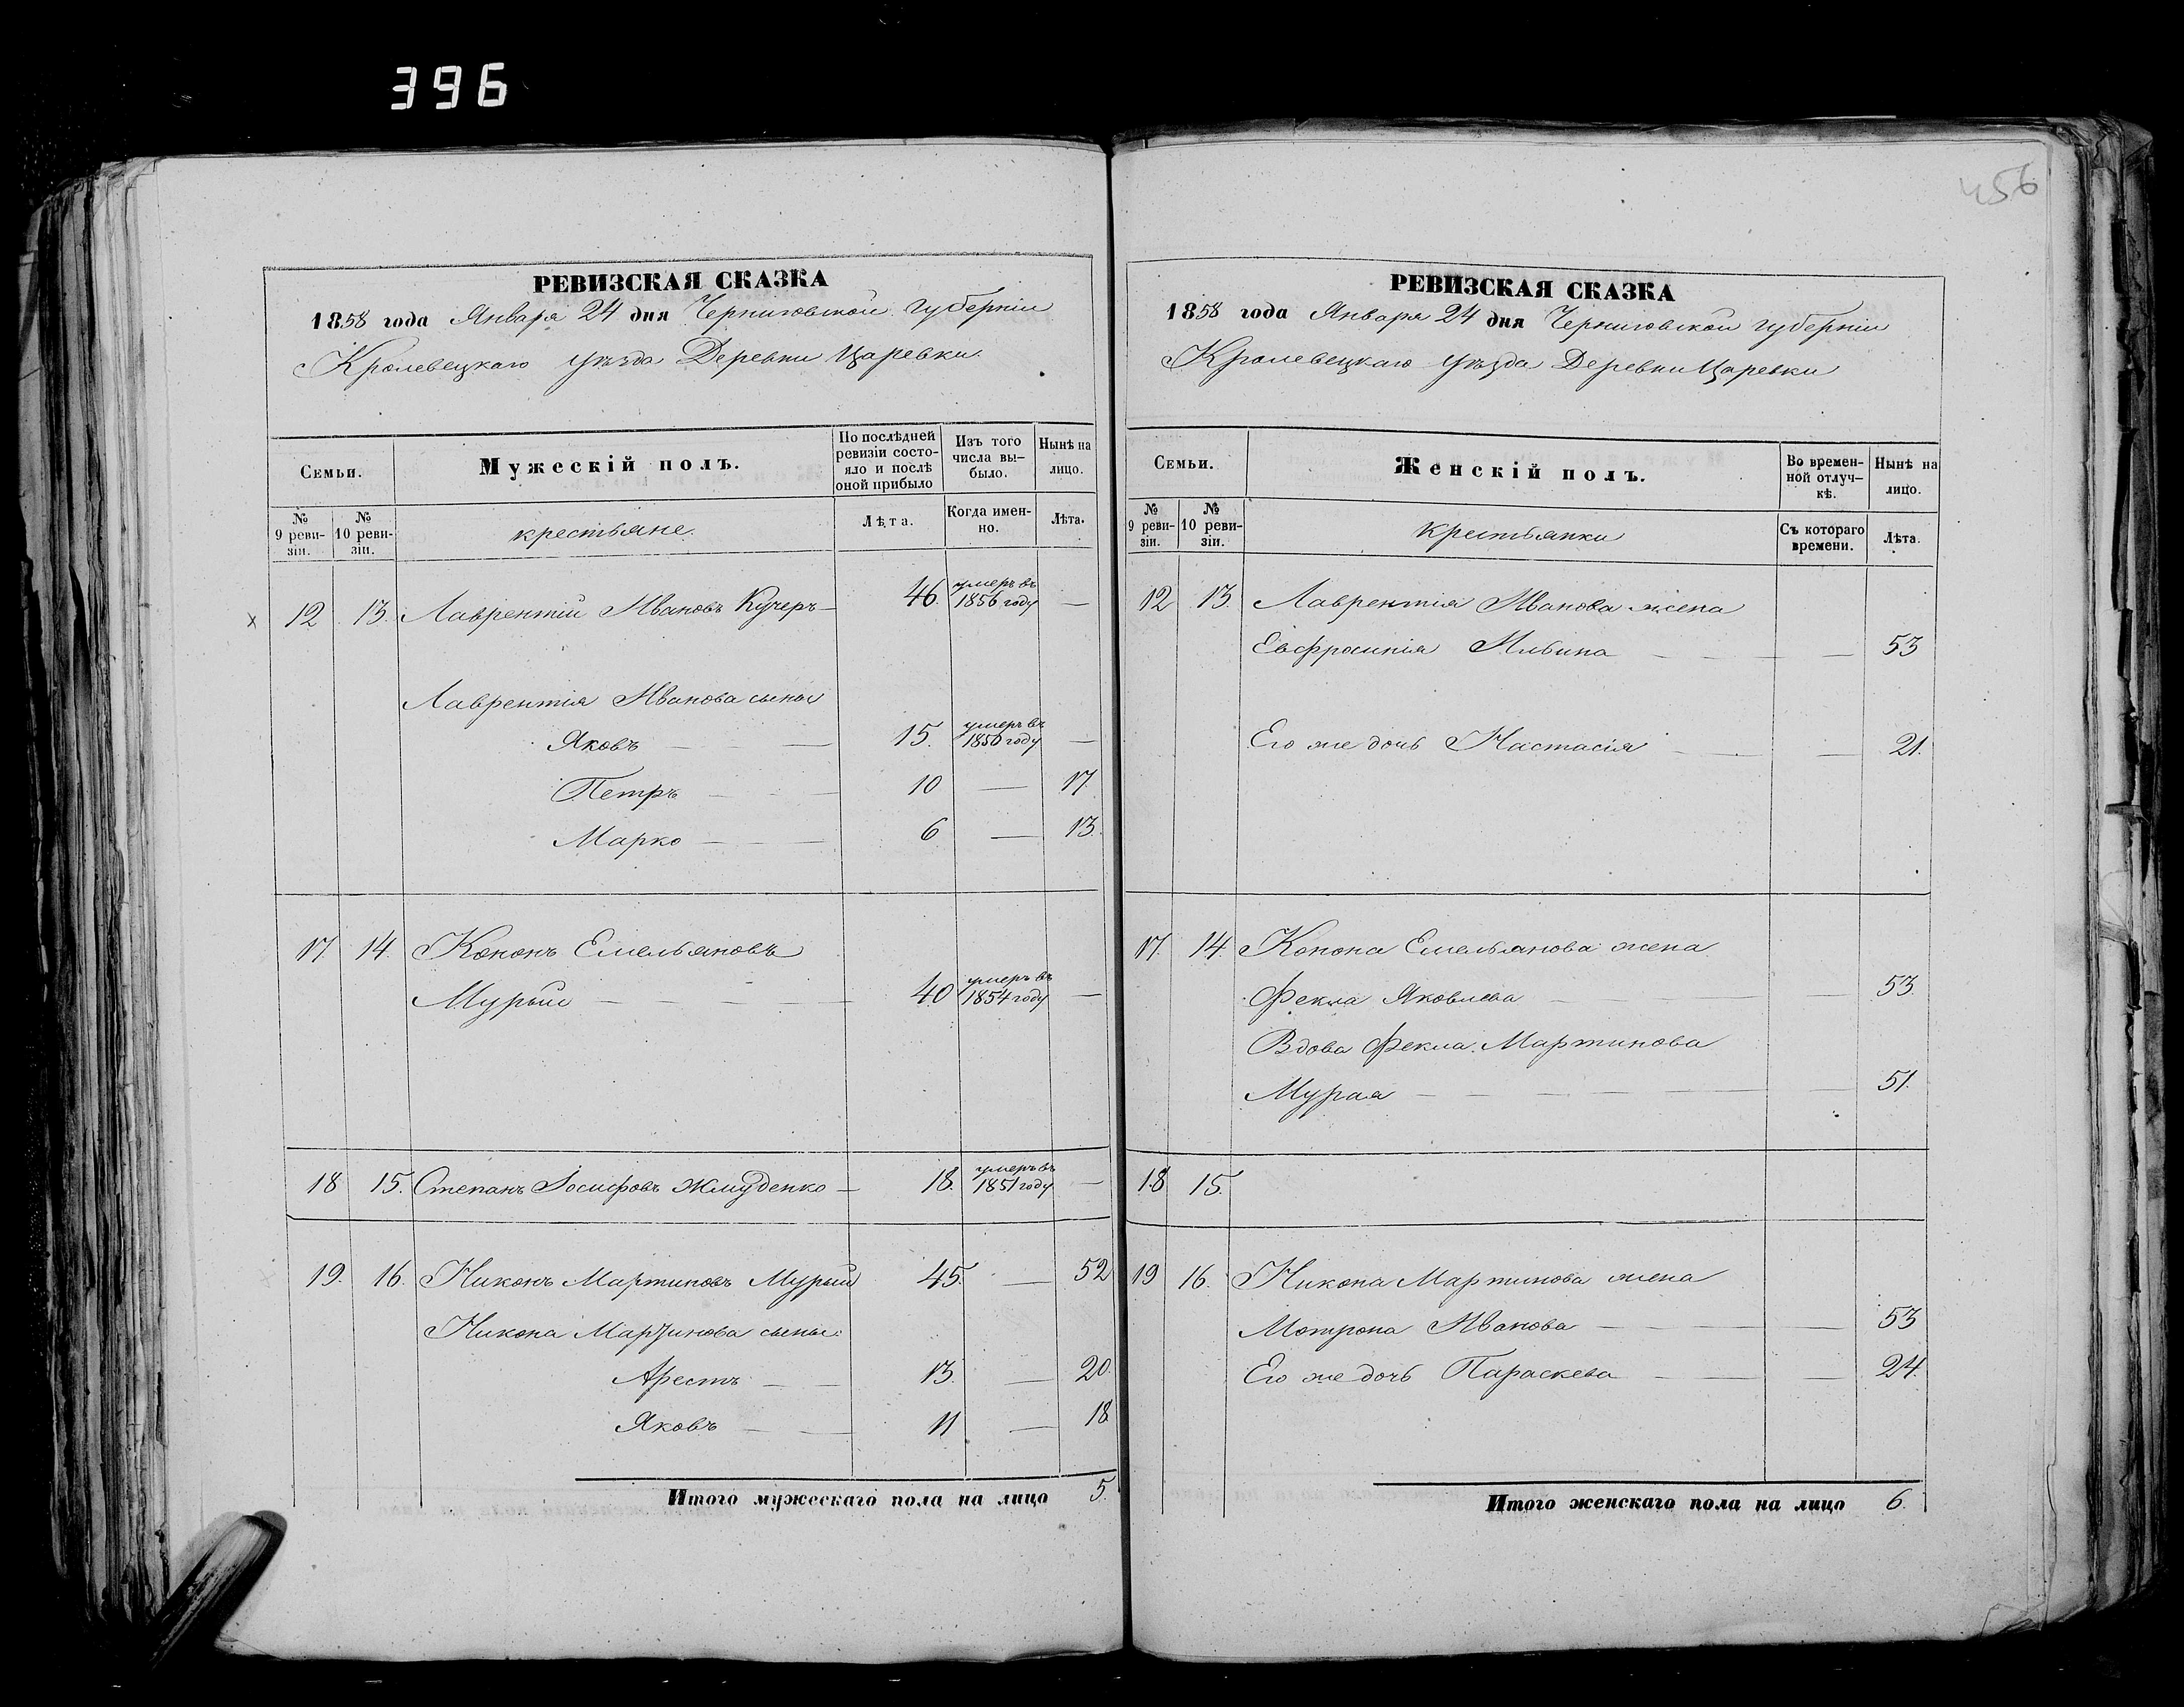 396
456
РЕВИЗСКАЯ СКАЗКА
1858 года Января 24 дня Черниговской губерніи
Кролевецкаго уѣзда Деревни Царевки.
Семьи.
Мужескій полъ.
По послѣдней ревизіи состояло и послѣ оной прибыло
Изъ того числа выбыло.
Нынѣ на лицо.
№ 9 ревизіи.
№ 10 ревизіи.
крестьяне.
Лѣта.
Когда именно.
Лѣта.
12 13. Лаврентій Ивановъ Кучеръ — 46. умеръ въ 1856 году —
Лаврентія Иванова сыны
Яковъ — — 15. умеръ въ 1856 году —
Петръ — — 10 — 17.
Марко — — 6 — 13.
17 14. Кононъ Емельяновъ
Мурый — — — 40 умеръ въ 1854 году —
18 15. Степанъ Іосифовъ Жмуденко — 18. умеръ въ 1851 году —
19. 16. Никонъ Мартиновъ Мурый 45. — 52
Никона Мартинова сыны:
Арестъ — 13. — 20.
Яковъ — — 11 — 18
Итого мужескаго пола на лицо 5.
РЕВИЗСКАЯ СКАЗКА
1858 года Января 24 дня Черниговской губерніи
Кролевецкаго уѣзда Деревни Царевки
Семьи.
Женскій полъ.
Во временной отлучкѣ.
Нынѣ на лицо.
№ 9 ревизіи.
№ 10 ревизіи.
крестьянки
Съ котораго времени.
Лѣта.
12 13. Лаврентія Иванова жена
Евфросинія Ильина — — — — 53
Его же дочь Настасія — — — 21.
17. 14. Конона Емельянова жена
Фекла Яковлева — — — 53.
Вдова Фекла Мартинова
Мурая — — — — — 51.
18 15.
19 16. Никона Мартинова жена
Мотрона Иванова — — — — 53
Его же дочь Параскева — — — 24.
Итого женскаго пола на лицо 6.